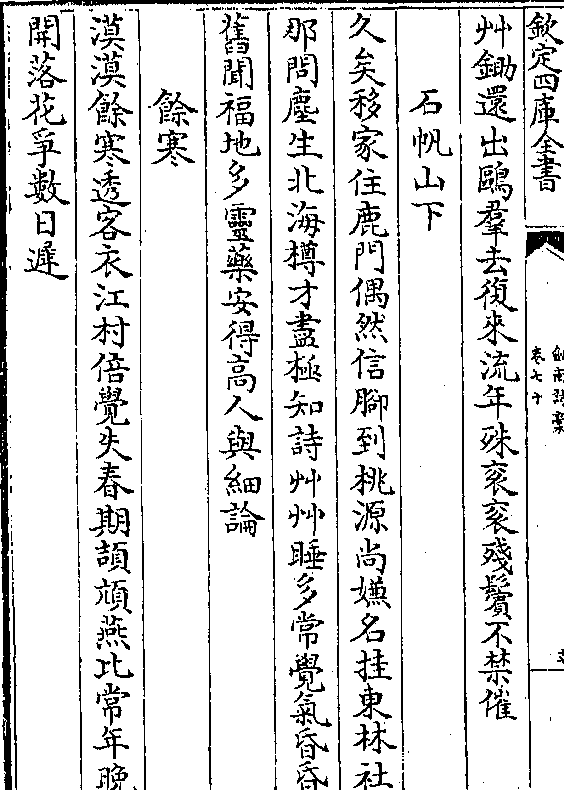 欽定四庫全書
劍南詩藁
卷七十
艸鋤還出鷗羣去復來流年殊衮衮殘鬢不禁催
石帆山下
久矣移家住鹿門偶然信腳到桃源尚嫌名挂東林社
那問塵生北海樽才盡極知詩艸艸睡多常覺氣昏昏
舊聞福地多靈藥安得高人與細論
餘寒
漠漠餘寒透客衣江村倍覺失春期頡頏燕比常年晚
開落花爭數日遲